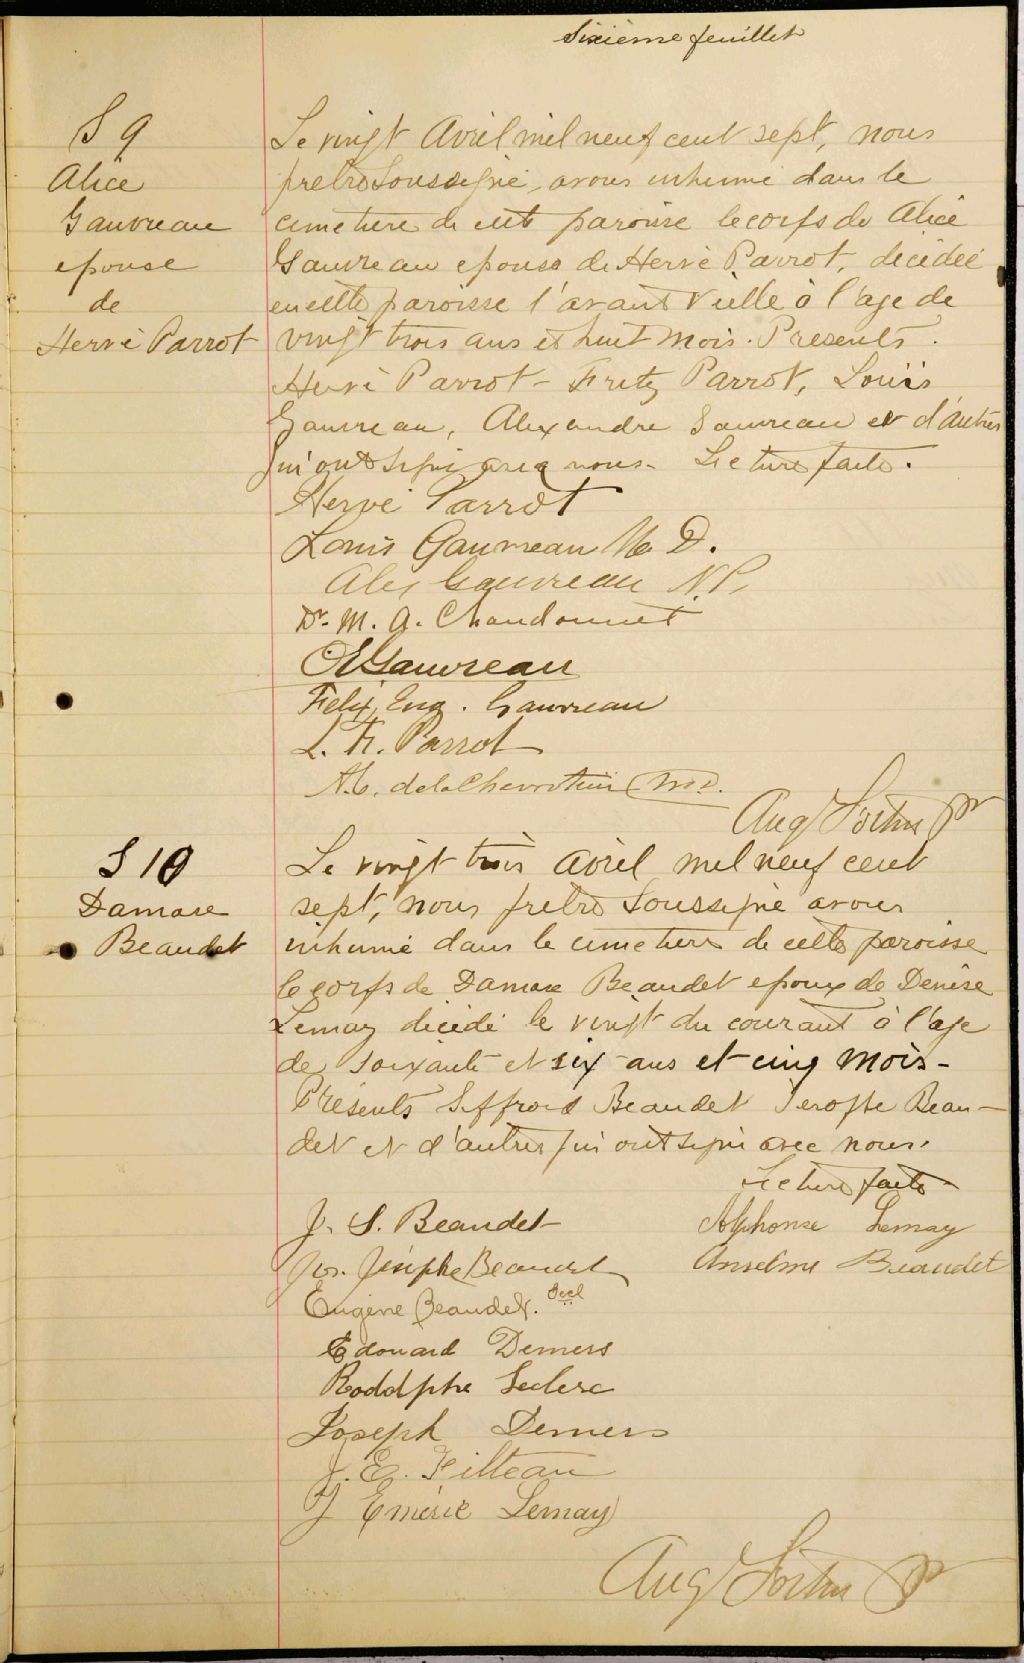 Sixième feuillet
S 9
Alice
Gauvreau
epouse
de
Hervé Parrot
Le vingt Avril mil neuf cent sept, nous
pretre soussigné, avons inhumé dans le
cimetiere de cette paroisse le corps de Alice
Gauvreau epouse de Hervé Parrot, décédée
en cette paroisse l'avant veille à l'age de
vingt trois ans et huit mois. Presents.
Hervé Parrot - Fritz Parrot, Louis
Gauvreau, Alexandre Gauvreau et d'autres
qui ont signé avec nous. Lecture faite.
Hervé Parrot
Louis Gauvreau M. D.
Alex Gauvreau N.P.
Dr. M. A. Chandonnet
Gauvreau
Felix Eug. Gauvreau
L. F. Parrot
de la Chevrotière M.D.
Aug Ptr
S 10
Damase
Beaudet
Le vingt trois avril mil neuf cent
sept, nous pretre soussigné avons
inhumé dans le cimetiere de cette paroisse
le corps de Damase Beaudet epoux de Denise
Lemay décédé le vingt du courant à l'age
de soixante et six ans et cinq mois -
Présents Siffroid Beaudet Beau-
det et d'autres qui ont signé avec nous.
Lecture faite
J. S. Beaudet
Alphonse Lemay
Jos. Josephe Beaudet
Anselme Beaudet
Eugène Beaudet.
Edouard Demers
Rodolphe Leclerc
Joseph Demers
J. E. Filteau
J Emérie Lemay
Aug Ptr